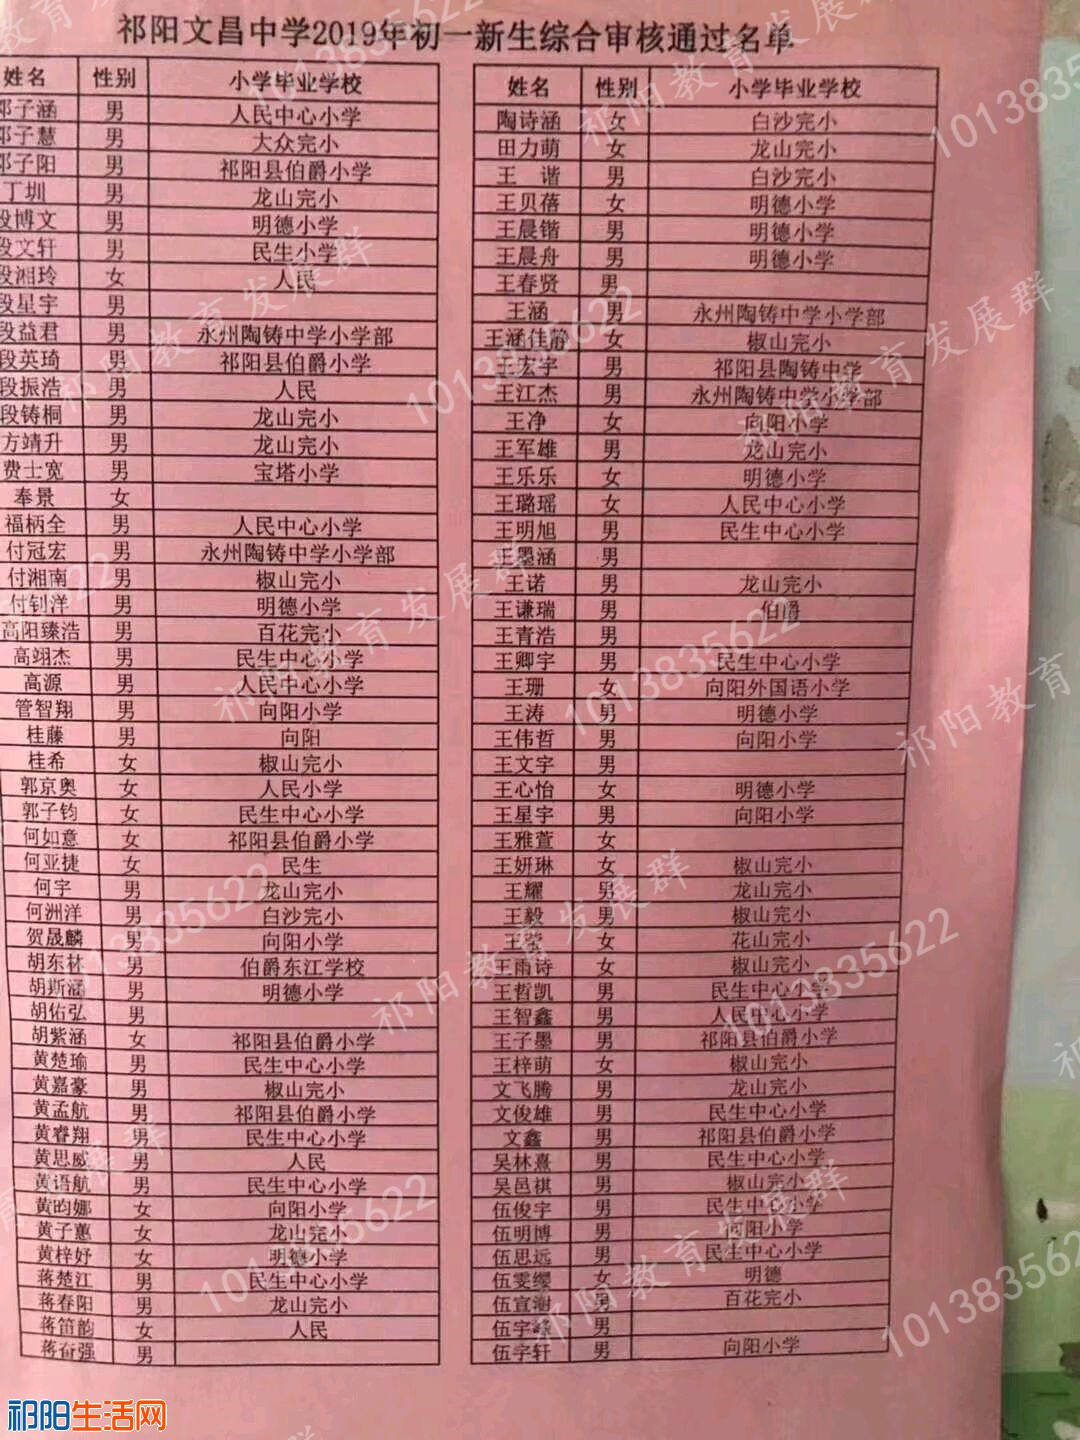 祁阳文昌中学2019年初一新生综合审核通过名单
姓名 性别 小学毕业学校
邓子涵 男 人民中心小学
邓子慧 男 大众完小
邓子阳 男 祁阳县伯爵小学
丁圳 男 龙山完小
段博文 男 明德小学
段文轩 男 民生小学
段湘玲 女 人民
段星宇 男
段益君 男 永州陶铸中学小学部
段英琦 男 祁阳县伯爵小学
段振浩 男 人民
段铸桐 男 龙山完小
方靖升 男 龙山完小
费士宽 男 宝塔小学
奉景 女
福柄全 男 人民中心小学
付冠宏 男 永州陶铸中学小学部
付湘南 男 椒山完小
付钊洋 男 明德小学
高阳臻浩 男 百花完小
高翊杰 男 民生中心小学
高源 男 人民中心小学
管智翔 男 向阳小学
桂藤 男 向阳
桂希 女 椒山完小
郭京奥 女 人民小学
郭子钧 女 民生中心小学
何如意 女 祁阳县伯爵小学
何亚捷 女 民生
何宇 男 龙山完小
何洲洋 男 白沙完小
贺晟麟 男 向阳小学
胡东林 男 伯爵东江学校
胡斯涵 男 明德小学
胡佑弘 男
胡紫涵 女 祁阳县伯爵小学
黄楚瑜 男 民生中心小学
黄嘉豪 男 椒山完小
黄孟航 男 祁阳县伯爵小学
黄睿翔 男 民生中心小学
黄思威 男 人民
黄语航 男 民生中心小学
黄昀娜 女 向阳小学
黄子蕙 女 龙山完小
黄梓妤 女 明德小学
蒋楚江 男 民生中心小学
蒋春阳 男 龙山完小
蒋笛韵 女 人民
蒋奋强 男
姓名 性别 小学毕业学校
陶诗涵 女 白沙完小
田力萌 女 龙山完小
王谐 男 白沙完小
王贝蓓 女 明德小学
王晨锴 男 明德小学
王晨舟 男 明德小学
王春贤 男
王涵 男 永州陶铸中学小学部
王涵佳静 女 椒山完小
王宏宇 男 祁阳县陶铸中学
王江杰 男 永州陶铸中学小学部
王净 女 向阳小学
王军雄 男 龙山完小
王乐乐 女 明德小学
王璐瑶 女 人民中心小学
王明旭 男 民生中心小学
王墨涵 男
王诺 男 龙山完小
王谦瑞 男 伯爵
王青浩 男
王卿宇 男 民生中心小学
王珊 女 向阳外国语小学
王涛 男 明德小学
王伟哲 男 向阳小学
王文宇 男
王心怡 女 明德小学
王星宇 男 向阳小学
王雅萱 女
王妍琳 女 椒山完小
王耀 男 龙山完小
王毅 男 椒山完小
王莹 女 花山完小
王雨诗 女 椒山完小
王哲凯 男 民生中心小学
王智鑫 男 人民中心小学
王子墨 男 祁阳县伯爵小学
王梓萌 女 椒山完小
文飞腾 男 龙山完小
文俊雄 男 民生中心小学
文鑫 男 祁阳县伯爵小学
吴林熹 男 民生中心小学
吴邑祺 男 椒山完小
伍俊宇 男 民生中心小学
伍明博 男 向阳小学
伍思远 男 民生中心小学
伍雯缨 女 明德
伍宣澍 男 百花完小
伍宇峰 男
伍宇轩 男 向阳小学
祁阳教育发展群
1013835622
祁阳生活网